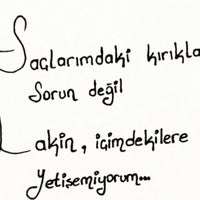 Saçlarımdaki kırıkla
Sorun değil
Lakin, içimdekilere
yetişemiyorum...